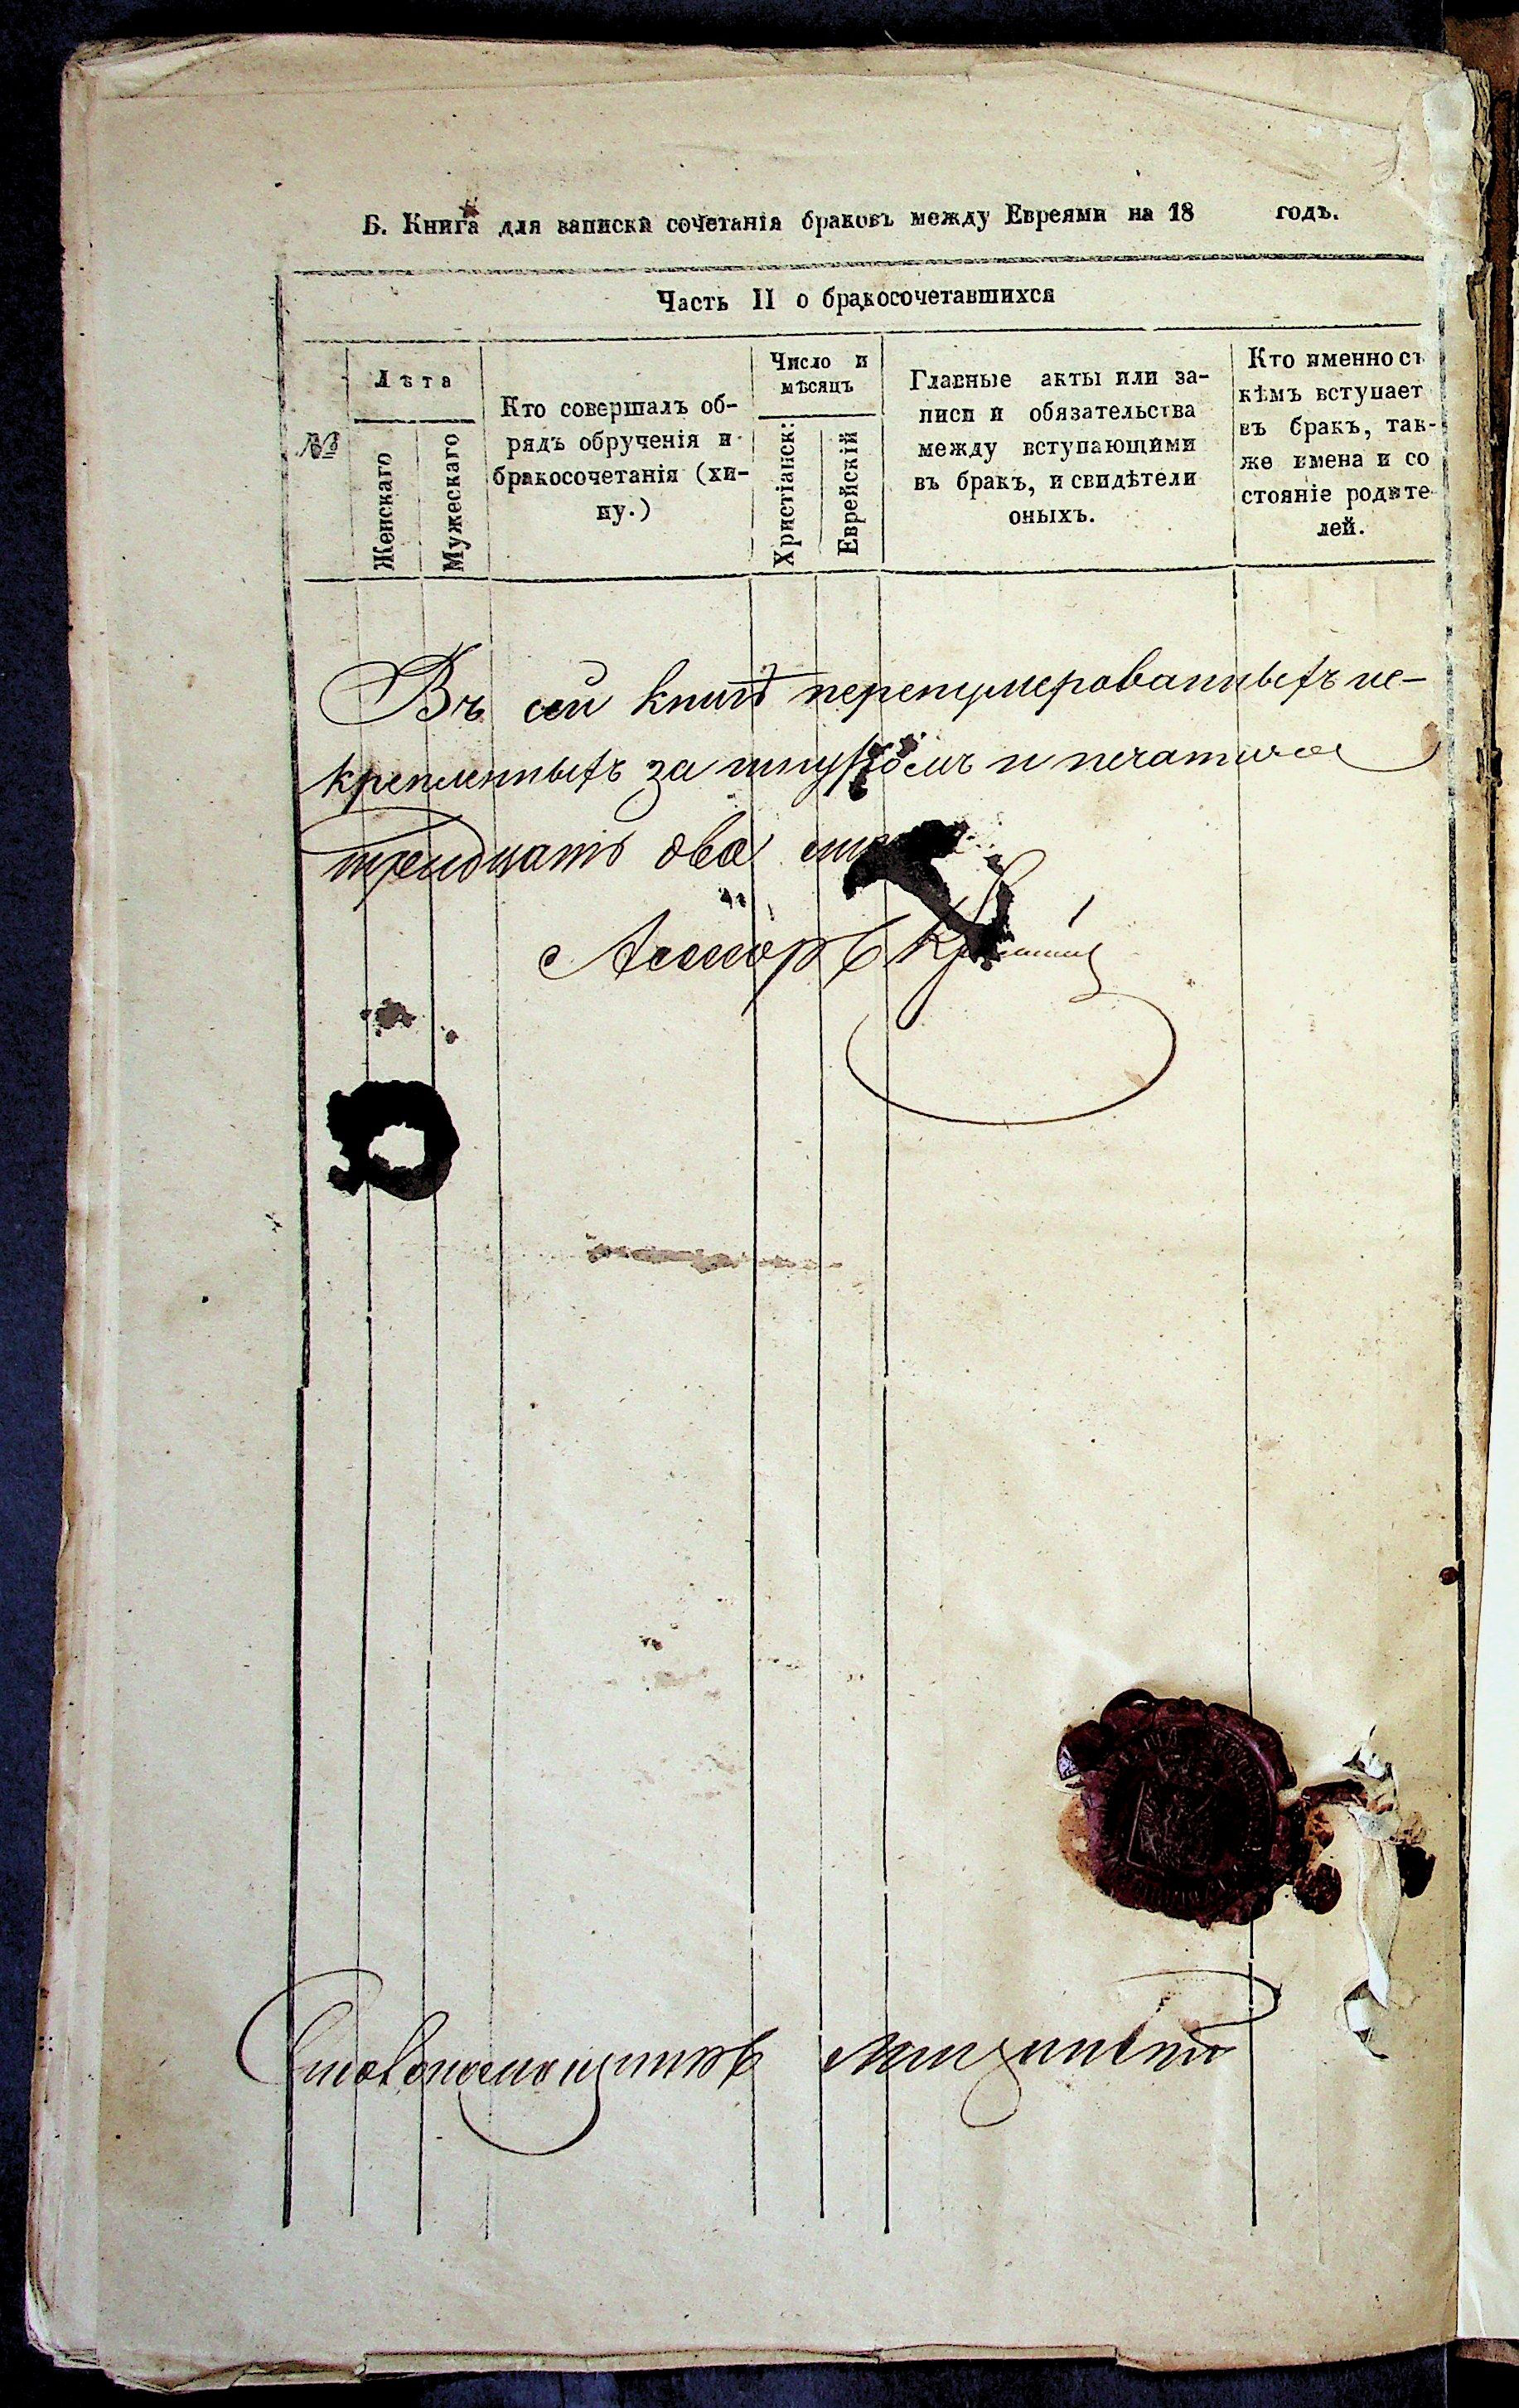 Б. Книга для записки сочетанія браковъ между Евреями на 18 годъ.
Часть II о бракосочетавшихся
№
Лѣта
Женскаго
Мужескаго
Кто совершалъ об-
рядъ обрученія и
бракосочетанія (хи-
пу.)
Число и
мѣсяцъ
Христіанск:
Еврейскій
Главные акты или за-
писи и обязательства
между вступающими
въ бракъ, и свидѣтели
оныхъ.
Кто именно съ
кѣмъ вступает
въ бракъ, так-
же имена и со
стояніе родите-
лей.
Въ сей книгѣ перенумерованныхъ и с-
крепленныхъ за шнуромъ и печатью
тридцать два